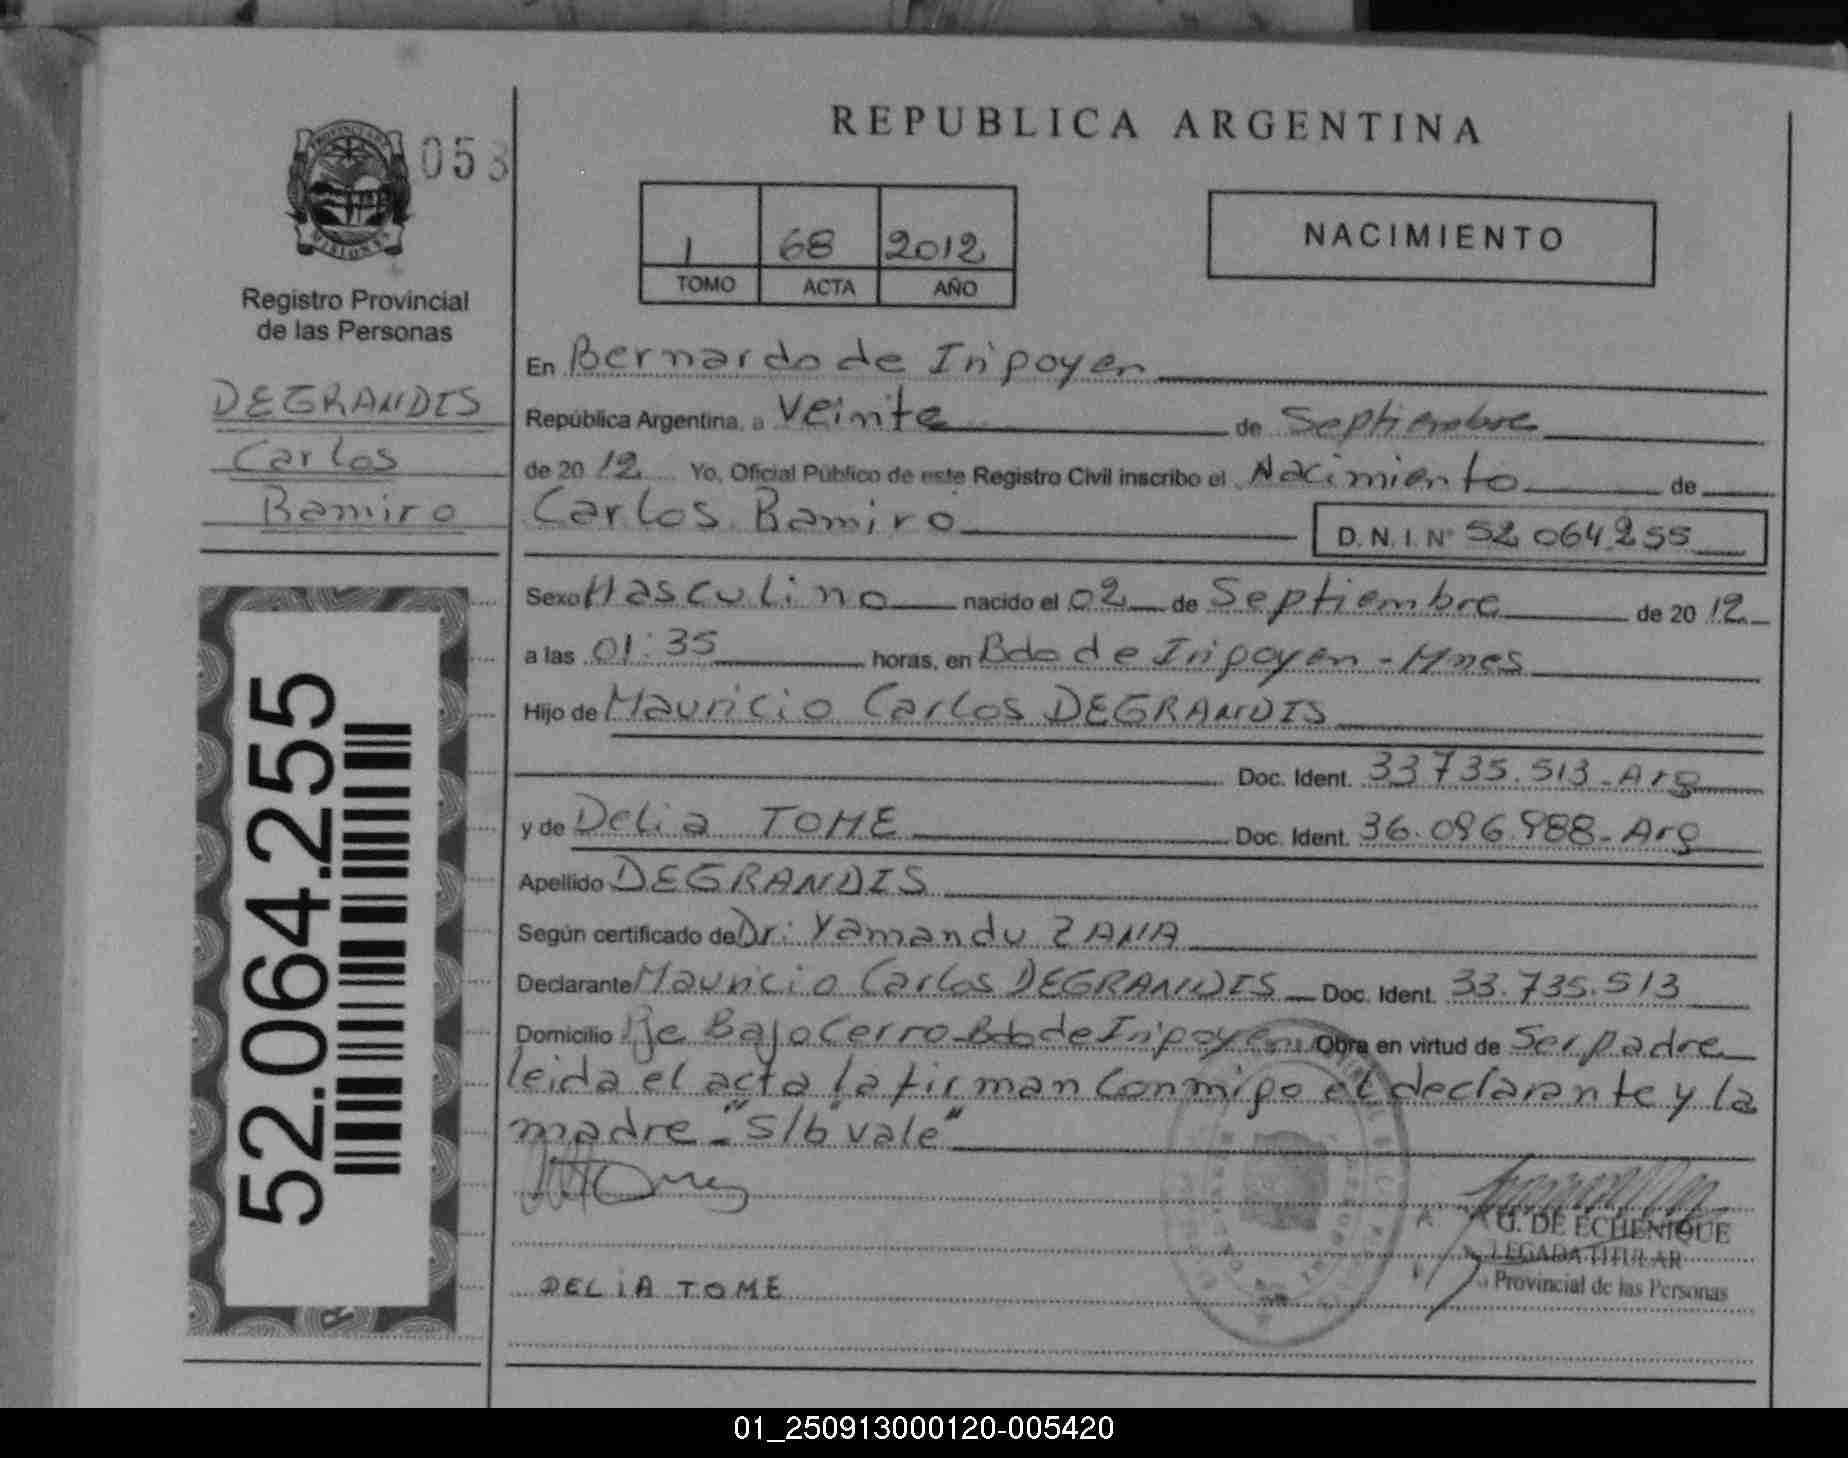 REPUBLICA ARGENTINA
058
1 68 2012
TOMO ACTA AÑO
NACIMIENTO
Registro Provincial
de las Personas
DEGRANDIS
Carlos
Ramiro
52.064.255
En Bernardo de Irigoyen
República Argentina, a Veinte de Septiembre
de 20 12 Yo, Oficial Público de este Registro Civil inscribo el Nacimiento de
Carlos Ramiro D.N.I. Nº 52 064.255
Sexo Masculino nacido el 02 de Septiembre de 20 12
a las 01:35 horas, en Bdo de Irigoyen - Mnes
Hijo de Mauricio Carlos DEGRANDIS
Doc. Ident. 33 735.513 - Arg
y de Delia TOME Doc. Ident. 36.096.988 - Arg
Apellido DEGRANDIS
Según certificado de Dr: Yamandu ZANA
Declarante Mauricio Carlos DEGRANDIS Doc. Ident. 33.735.513
Domicilio Pje Bajo Cerro - Bdo de Irigoyen Obra en virtud de Ser padre
leida el acta la firman conmigo el declarante y la
madre - "S/b vale"
G. DE ECHENIQUE
LEGADA TITULAR
Provincial de las Personas
DELIA TOME
01_250913000120-005420